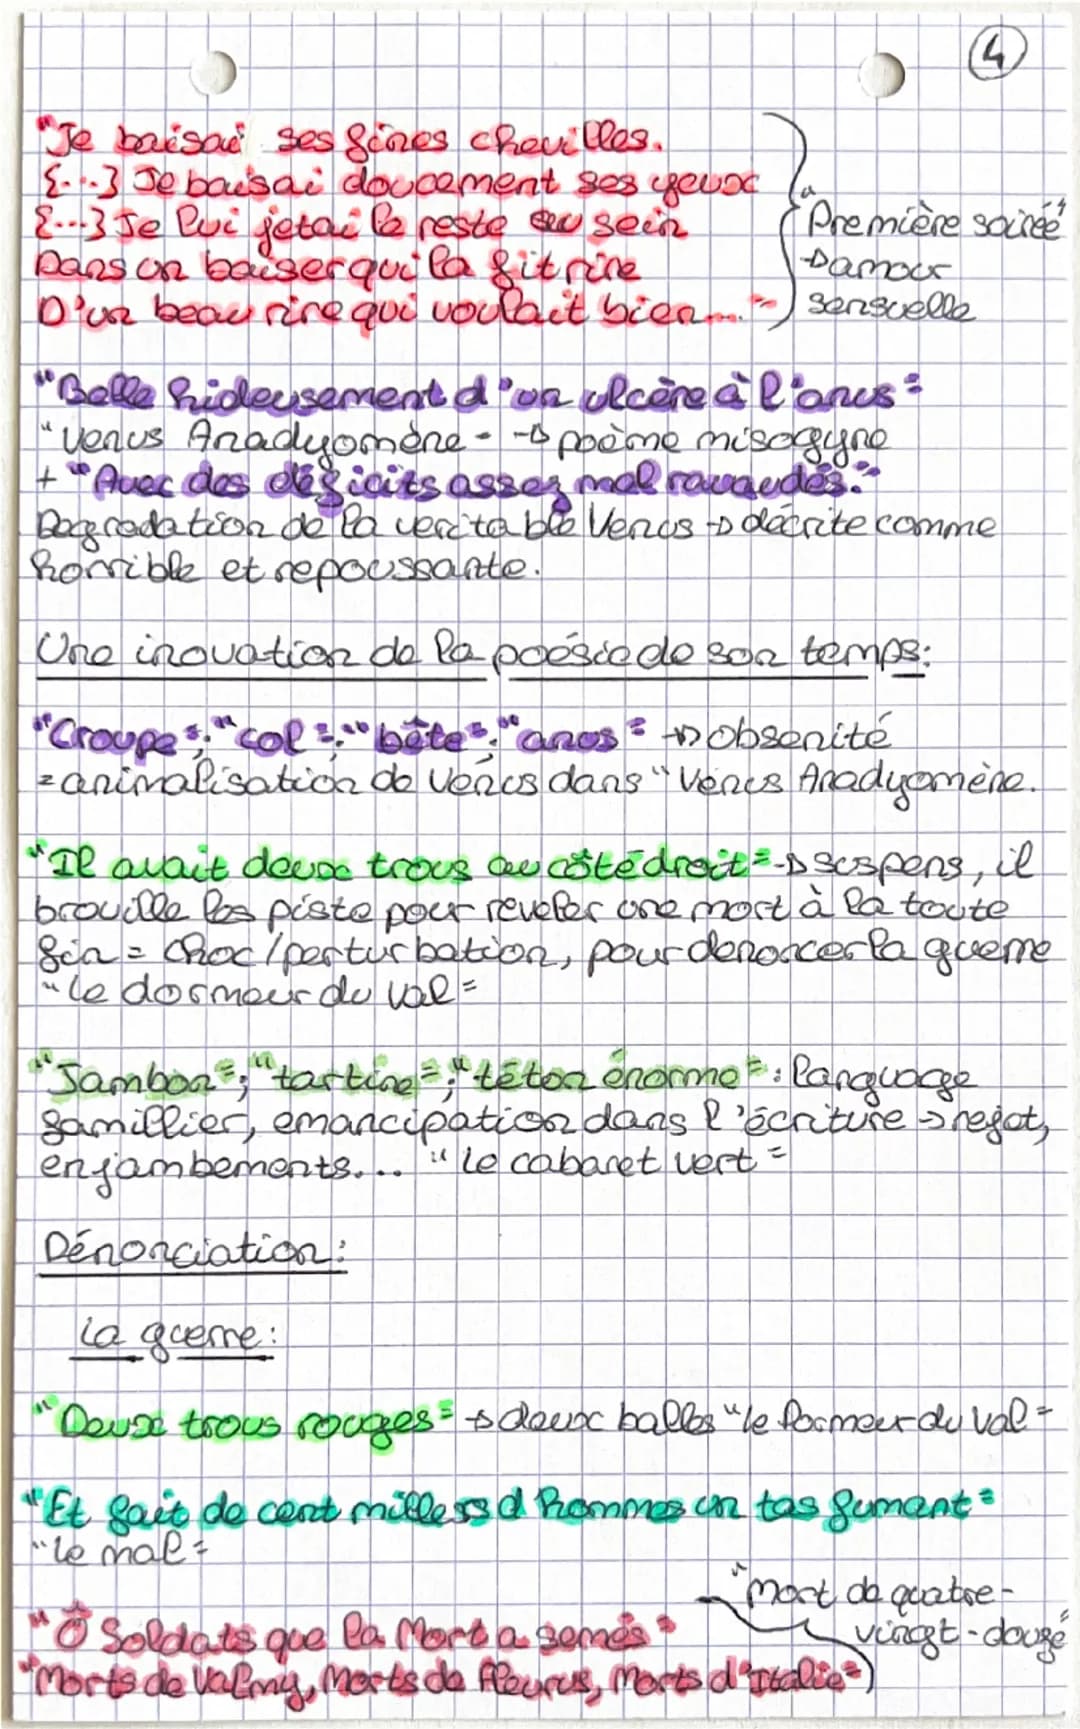 4
"Je baisai ses fines chevilles.
{...} Je baisai doucement ses yeux
{...} Je lui jetai le reste au sein
Dans un baiser qui la fit rire
D'un beau rire qui voulait bien...."
"Première soirée"
→ amour
sensuelle
"Belle hideusement d'un ulcère à l'anus"
"Venus Anadyomène" → poème misogyne
+ "Avec des déficits assez mal ravaudés."
Degradation de la veritable Venus → décrite comme
horrible et repoussante.
Une inovation de la poésie de son temps:
"Croupe"; "col"; "bête"; "anus" → obsenité
= animalisation de Vénus dans "Vénus Anadyomène.
"Il avait deux trous au côté droit" → suspens, il
brouille les piste pour reveler une mort à la toute
fin = choc/perturbation, pour denoncer la guerre
"Le dormeur du val"
"Jambon"; "tartine"; "téton énorme": language
famillier, emancipation dans l'écriture → rejet,
enjambements... "Le cabaret vert"
Dénonciation:
La guerre:
"Deux trous rouges" → deux balles "le dormeur du val"
"Et fait de cent milless d hommes un tas fumant"
"Le mal"
"Mort de quatre-
vingt-douze"
"Ô Soldats que la Mort a semés"
"Morts de Valmy, Morts de Fleurus, Morts d'Italie"